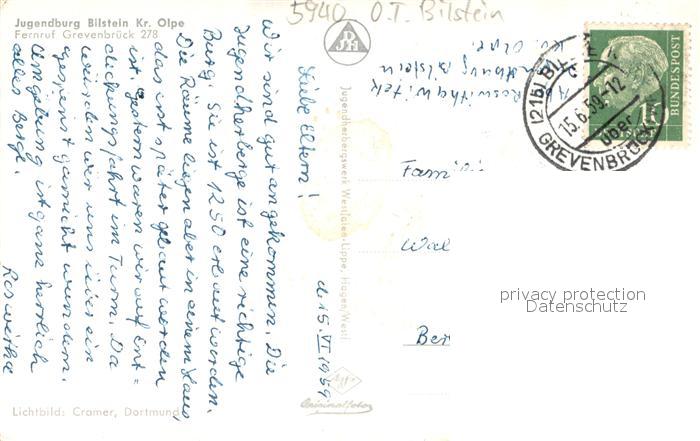 Jugendburg Bilstein Kr. Olpe
Fernruf Grevenbrück 278
5940 O.T. Bilstein
d. 15. VI 1959
Liebe Eltern!
Wir sind gut angekommen. Die
Jugendherberge ist eine richtige
Burg. Sie ist 1250 erbaut worden.
Die Räume liegen aber in einem Haus,
das erst später gebaut worden
ist. Gestern waren wir auf Ent=
deckungsfahrt im Turm. Da
würden wir uns über ein
Gespenst garnicht wundern.
Umgebung ist ganz herrlich
alles Berge.
Roswitha
Jugendherbergswerk Westfalen-Lippe, Hagen/Westf
Roswitha Witek
Jugendburg Bilstein
Kr. Olpe
Famili
Wal
Ber
(21b) BIL
15.6.59.-12
über
GREVENBRÜCK
BUNDESPOST
privacy protection
Datenschutz
Agfa
Originalfoto
Lichtbild: Cramer, Dortmund